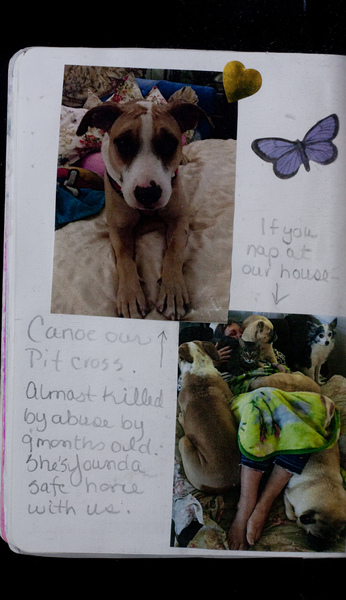 If you
nap at
our house-
Canoe our
Pit cross.
Almost killed
by abuse by
9 months old.
She's founda
safe home
with us.